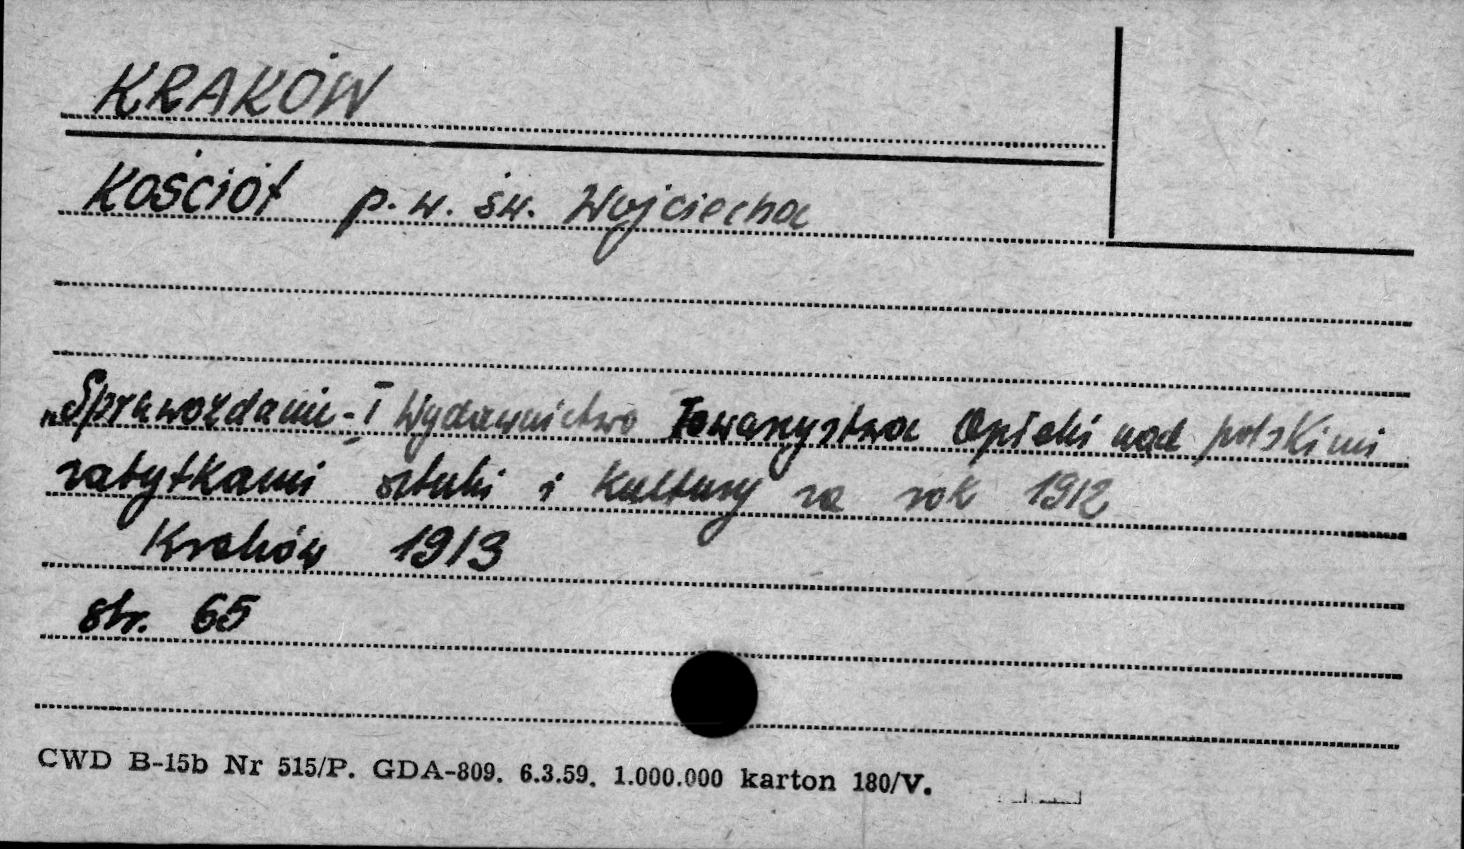 KRAKÓW
KOŚCIÓŁ p.w. św. Wojciecha
„Sprawozdanie - I Wydawnictwo Towarzystwa Opieki nad polskimi
zabytkami sztuki i kultury za rok 1912
Kraków 1913
str. 65
CWD B-15b Nr 515/P. GDA-809. 6.3.59. 1.000.000 karton 180/V.